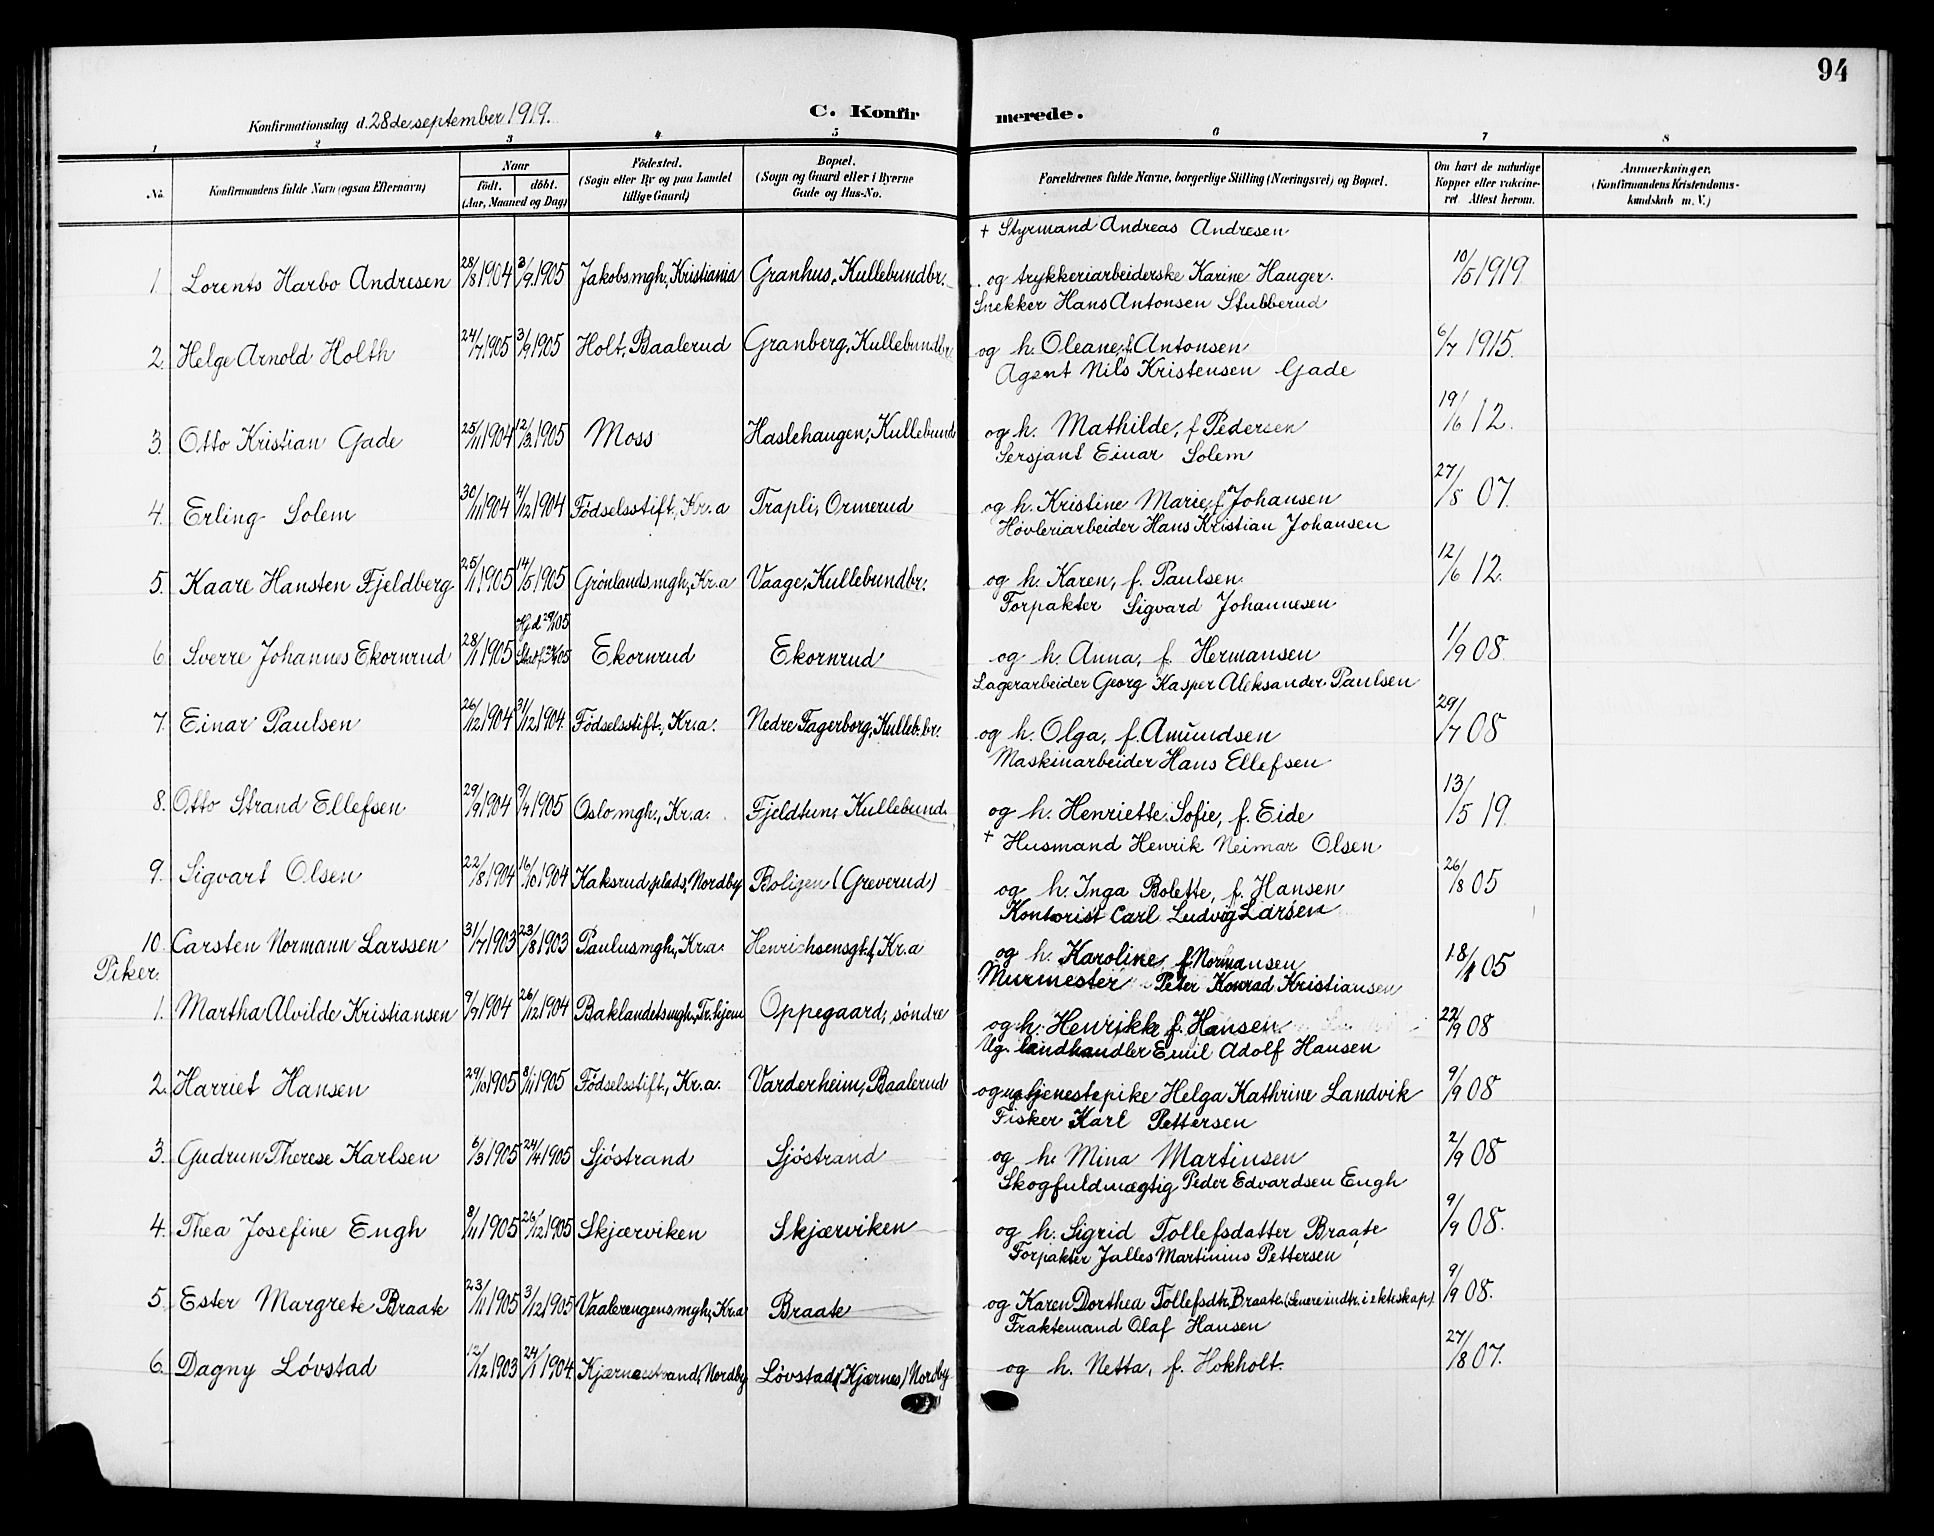 94
Konfirmationsdag d. 28de september 1919.
C. Konfirmerede.
1 2 3 4 5 6 7 8
No. Konfirmandens fulde Navn (ogsaa Efternavn) Naar født. døbt. (Aar, Maaned og Dag) Födested. (Sogn eller By og paa Landet tillige Gaard) Bopæl. (Sogn og Gaard eller i Byerne Gade og Hus-No. Forældrenes fulde Navne, borgerlige Stilling (Næringsvei) og Bopæl. Om havt de naturlige Kopper eller vakcineret Attest herom. Anmærkninger, (Konfirmandens Kristendomskundskab m. V.)
+ Styrmand Andreas Andresen
1. Lorents Harbo Andresen 28/8 1904 3/9 1905 Jakobs mgh., Kristiania Granhus, Kullebundbr. og trykkeriarbeiderske Karine Hauger. 10/5 1919
Snekker Hans Antonsen Stubberud
2. Helge Arnold Holth 24/7 1905 3/9 1905 Holt, Baalerud Granberg, Kullebundbr. og h. Oleane, f. Antonsen 6/7 1915.
Agent Nils Kristensen Gade
3. Otto Kristian Gade 25/11 1904 12/3 1905 Moss Haslehaugen, Kullebund og h. Mathilde, f. Pedersen 19/6 12.
Sersjant Einar Solem
4. Erling Solem 30/11 1904 4/12 1904 Födselsstift., Kr.a Trapli, Ormerud og h. Kristine Marie, f. Johansen 27/8 07.
Høvleriarbeider Hans Kristian Johansen
5. Kaare Hansten Fjeldberg 25/1 1905 14/5 1905 Grönlands mgh., Kr.a Vaage, Kullebundbr. og h. Karen, f. Paulsen. 12/6 12.
Forpakter Sigvard Johannesen
6. Sverre Johannes Ekornrud 28/1 1905 Ekornrud Ekornrud og h. Anna, f. Hermansen 1/9 08.
Lagerarbeider Georg Kasper Aleksander Paulsen
7. Einar Paulsen 26/12 1904 31/12 1904. Födselsstift., Kr.a. Nedre Fagerborg, Kulleb.br. og h. Olga, f. Amundsen 29/7 08
Maskinarbeider Hans Ellefsen
8. Otto Strand Ellefsen 29/9 1904 9/4 1905 Oslo mgh., Kr.a. Fjeldtun, Kullebund. og h. Henriette Sofie, f. Eide 13/5 19.
+ Husmand Henrik Neimar Olsen
9. Sigvart Olsen 22/8 1904 16/10 1904 Kaksrud plads, Nordby Boligen (Greverud) og h. Inga Bolette, f. Hansen 26/8 05
Kontorist Carl Ludvig Larsen
10. Carsten Normann Larssen 31/7 1903 23/8 1903 Paulus mgh., Kr.a. Henrichsensgt., Kr.a og h. Karoline, f. Normansen 18/ 05
Piker.
Murmester Peter Konrad Kristiansen
1. Martha Alvilde Kristiansen 9/9 1904 26/12 1904 Baklandets mgh., Tr.hjem Oppegaard, söndre og h. Henrikke f. Hansen 22/9 08
Ug. landhandler Emil Adolf Hansen
2. Harriet Hansen 29/10 1905 8/11 1905 Födselsstift., Kr.a. Varderheim, Baalerud og ug. tjenestepike Helga Kathrine Landvik 9/9 08
Fisker Karl Pettersen
3. Gudrun Therese Karlsen 6/3 1905 24/4 1905 Sjöstrand Sjöstrand og h. Mina Martinsen 2/9 08
Skogfuldmægtig Peder Edvardsen Engh
4. Thea Josefine Engh 8/11 1905 26/12 1905 Skjærviken Skjærviken og h. Sigrid Tollefsdatter Braate 9/9 08.
Forpakter Jalles Martinius Pettersen
5. Ester Margrete Braate 23/11 1905 3/12 1905 Vaalerengens mgh., Kr.a Braate og Karen Dorthea Tollefsdtr. Braate. (Senere indtr. i ekteskap). 9/9 08.
Fraktemand Olaf Hansen
6. Dagny Lövstad 12/12 1903 24/1 1904. Kjærnesstrand, Nordby Lövstad (Kjærnes) Nordby og h. Netta, f. Hokholt. 27/8 07.